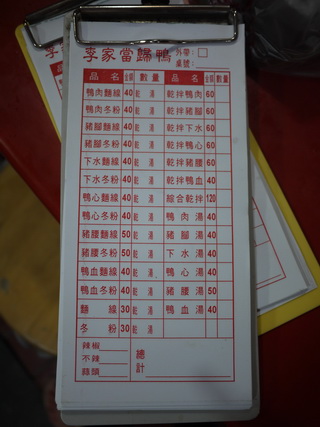 李家當歸鴨 外帶:□
桌號:
品名 金額 數量 品名 金額 數量
鴨肉麵線 40 乾 湯 乾拌鴨肉 60
鴨肉冬粉 40 乾 湯 乾拌豬腳 60
豬腳麵線 40 乾 湯 乾拌下水 60
豬腳冬粉 40 乾 湯 乾拌鴨心 60
下水麵線 40 乾 湯 乾拌豬腰 60
下水冬粉 40 乾 湯 乾拌鴨血 40
鴨心麵線 40 乾 湯 綜合乾拌 120
鴨心冬粉 40 乾 湯 鴨肉湯 40
豬腰麵線 50 乾 湯 豬腳湯 40
豬腰冬粉 50 乾 湯 下水湯 40
鴨血麵線 40 乾 湯 鴨心湯 40
鴨血冬粉 40 乾 湯 豬腰湯 50
麵線 30 乾 湯 鴨血湯 40
冬粉 30 乾 湯
辣椒
不辣
蒜頭
總計